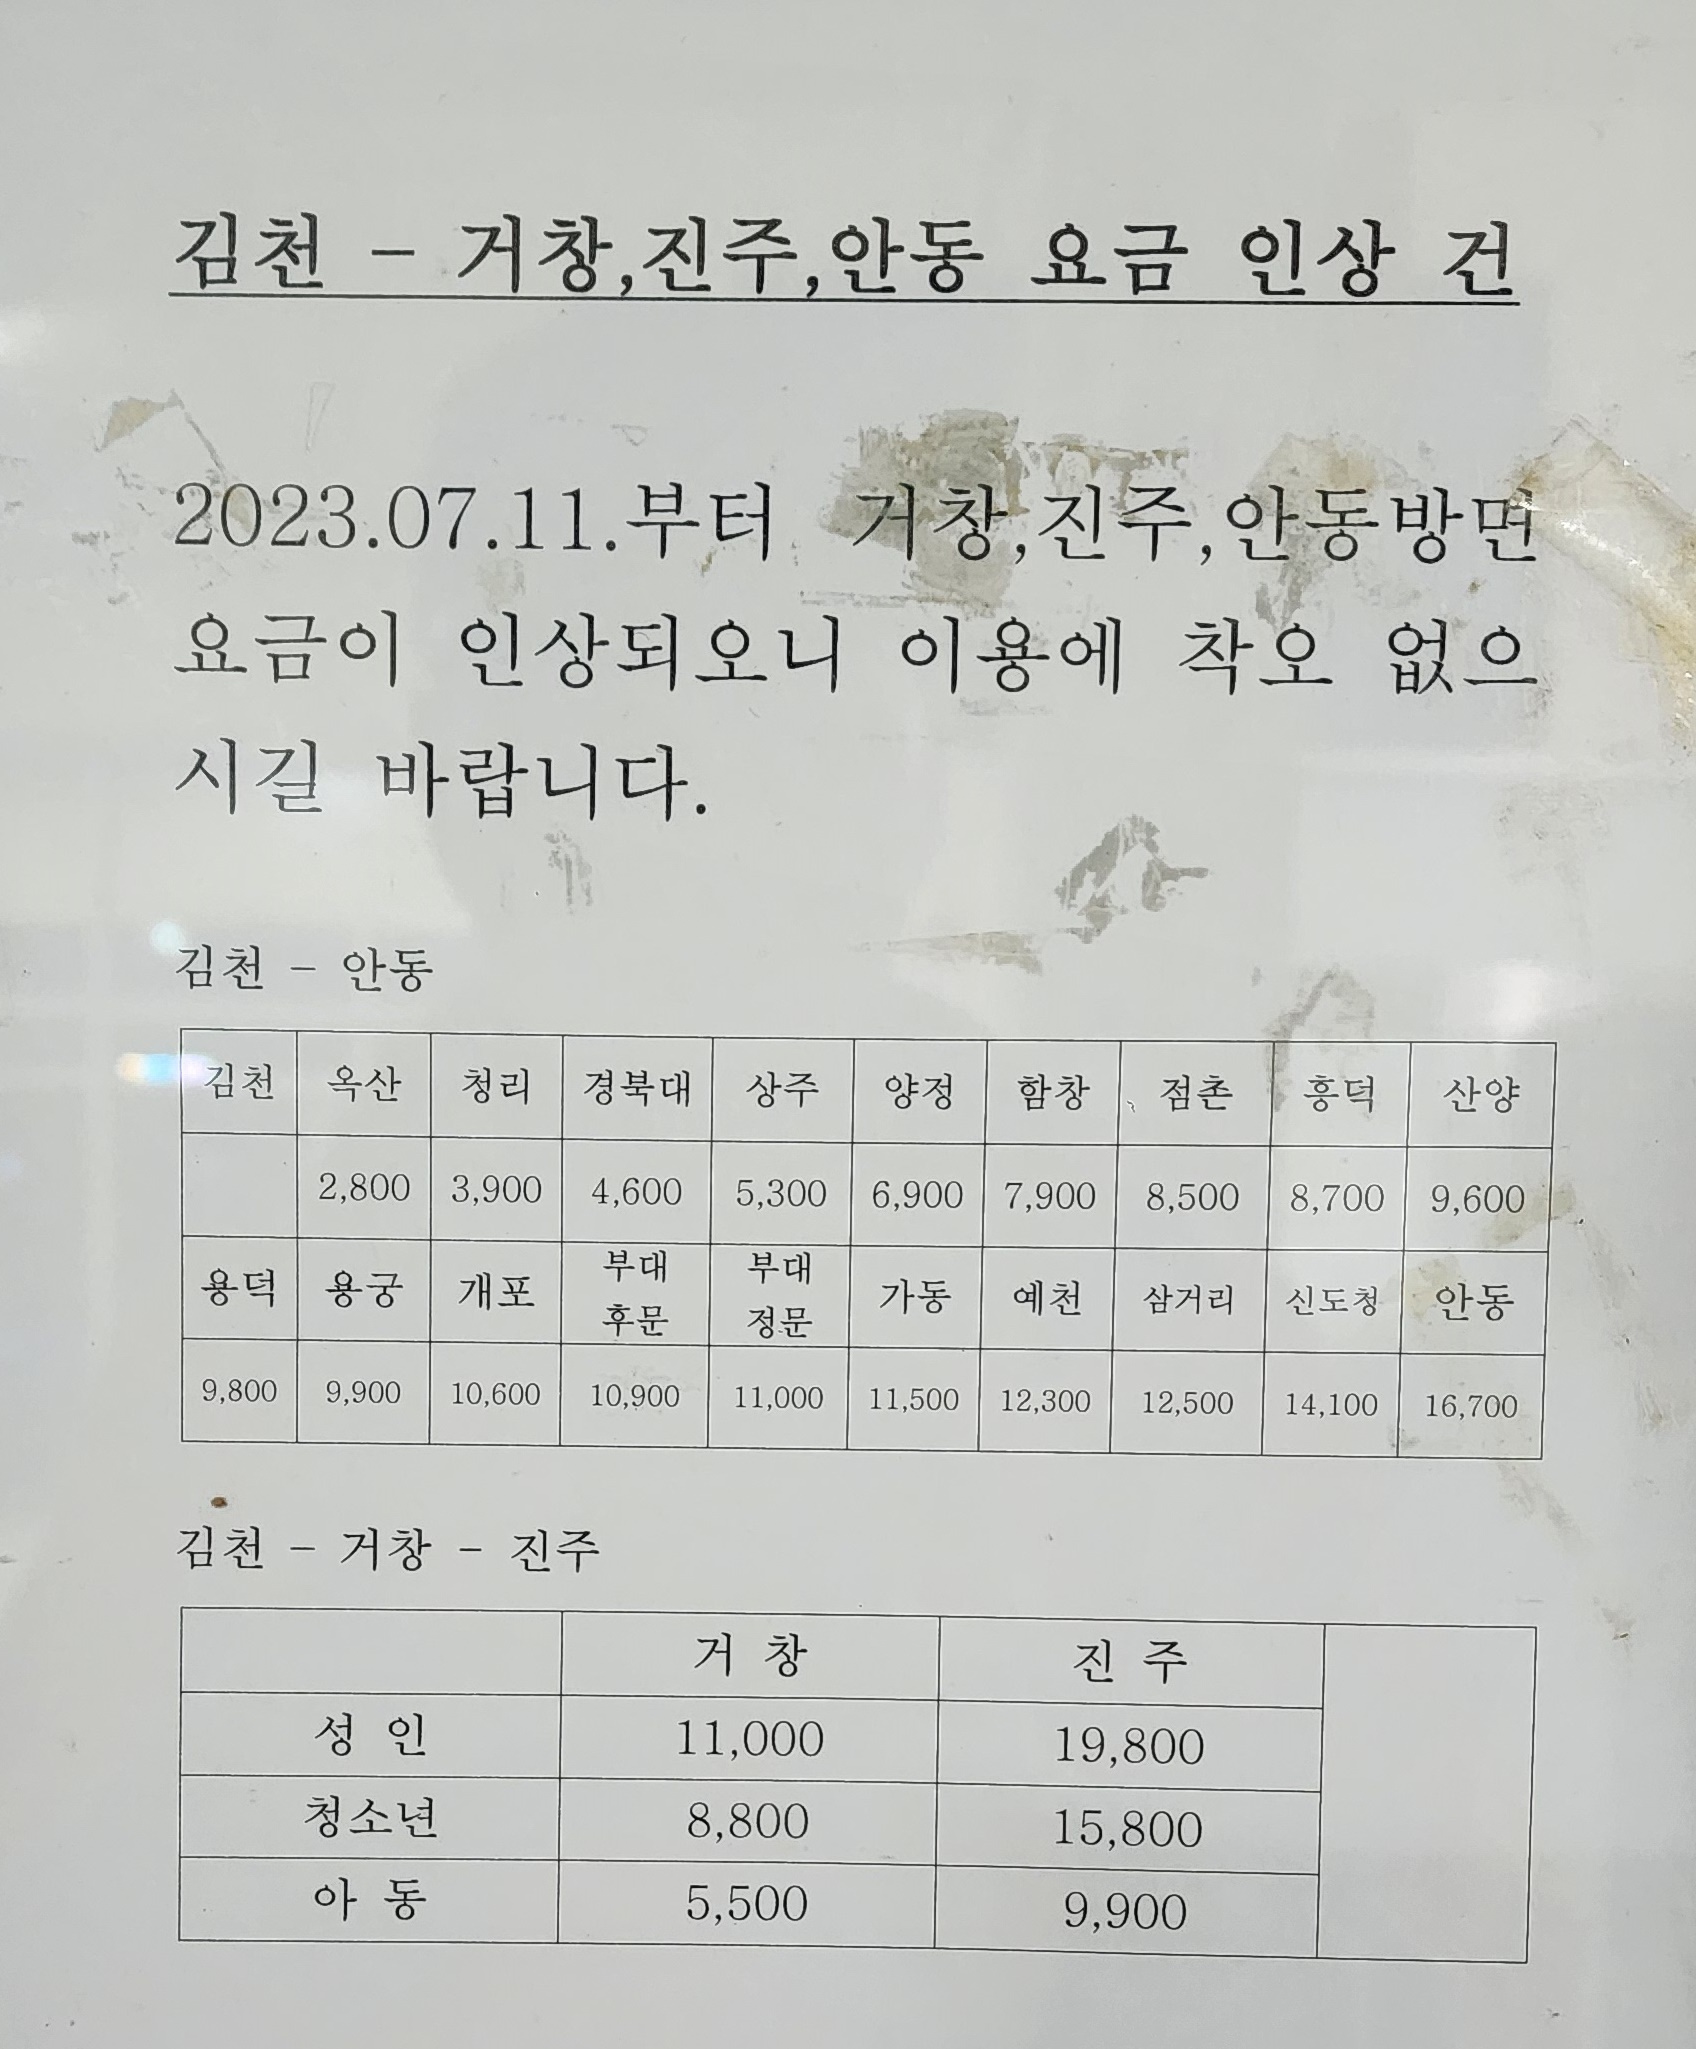 김천 - 거창,진주,안동 요금 인상 건
2023.07.11.부터 거창,진주,안동방면
요금이 인상되오니 이용에 착오 없으
시길 바랍니다.
김천 - 안동
김천 옥산 청리 경북대 상주 양정 함창 점촌 흥덕 산양
2,800 3,900 4,600 5,300 6,900 7,900 8,500 8,700 9,600
용덕 용궁 개포 부대 후문 부대 정문 가동 예천 삼거리 신도청 안동
9,800 9,900 10,600 10,900 11,000 11,500 12,300 12,500 14,100 16,700
김천 - 거창 - 진주
거 창 진 주
성 인 11,000 19,800
청소년 8,800 15,800
아 동 5,500 9,900